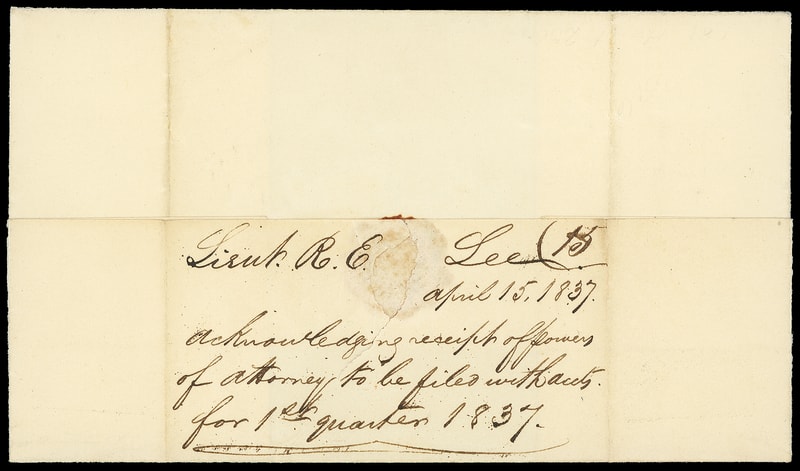 Lieut. R. E. Lee (15
april 15, 1837.
acknowledging receipt of powers
of attorney, to be filed with accts.
for 1st quarter 1837.